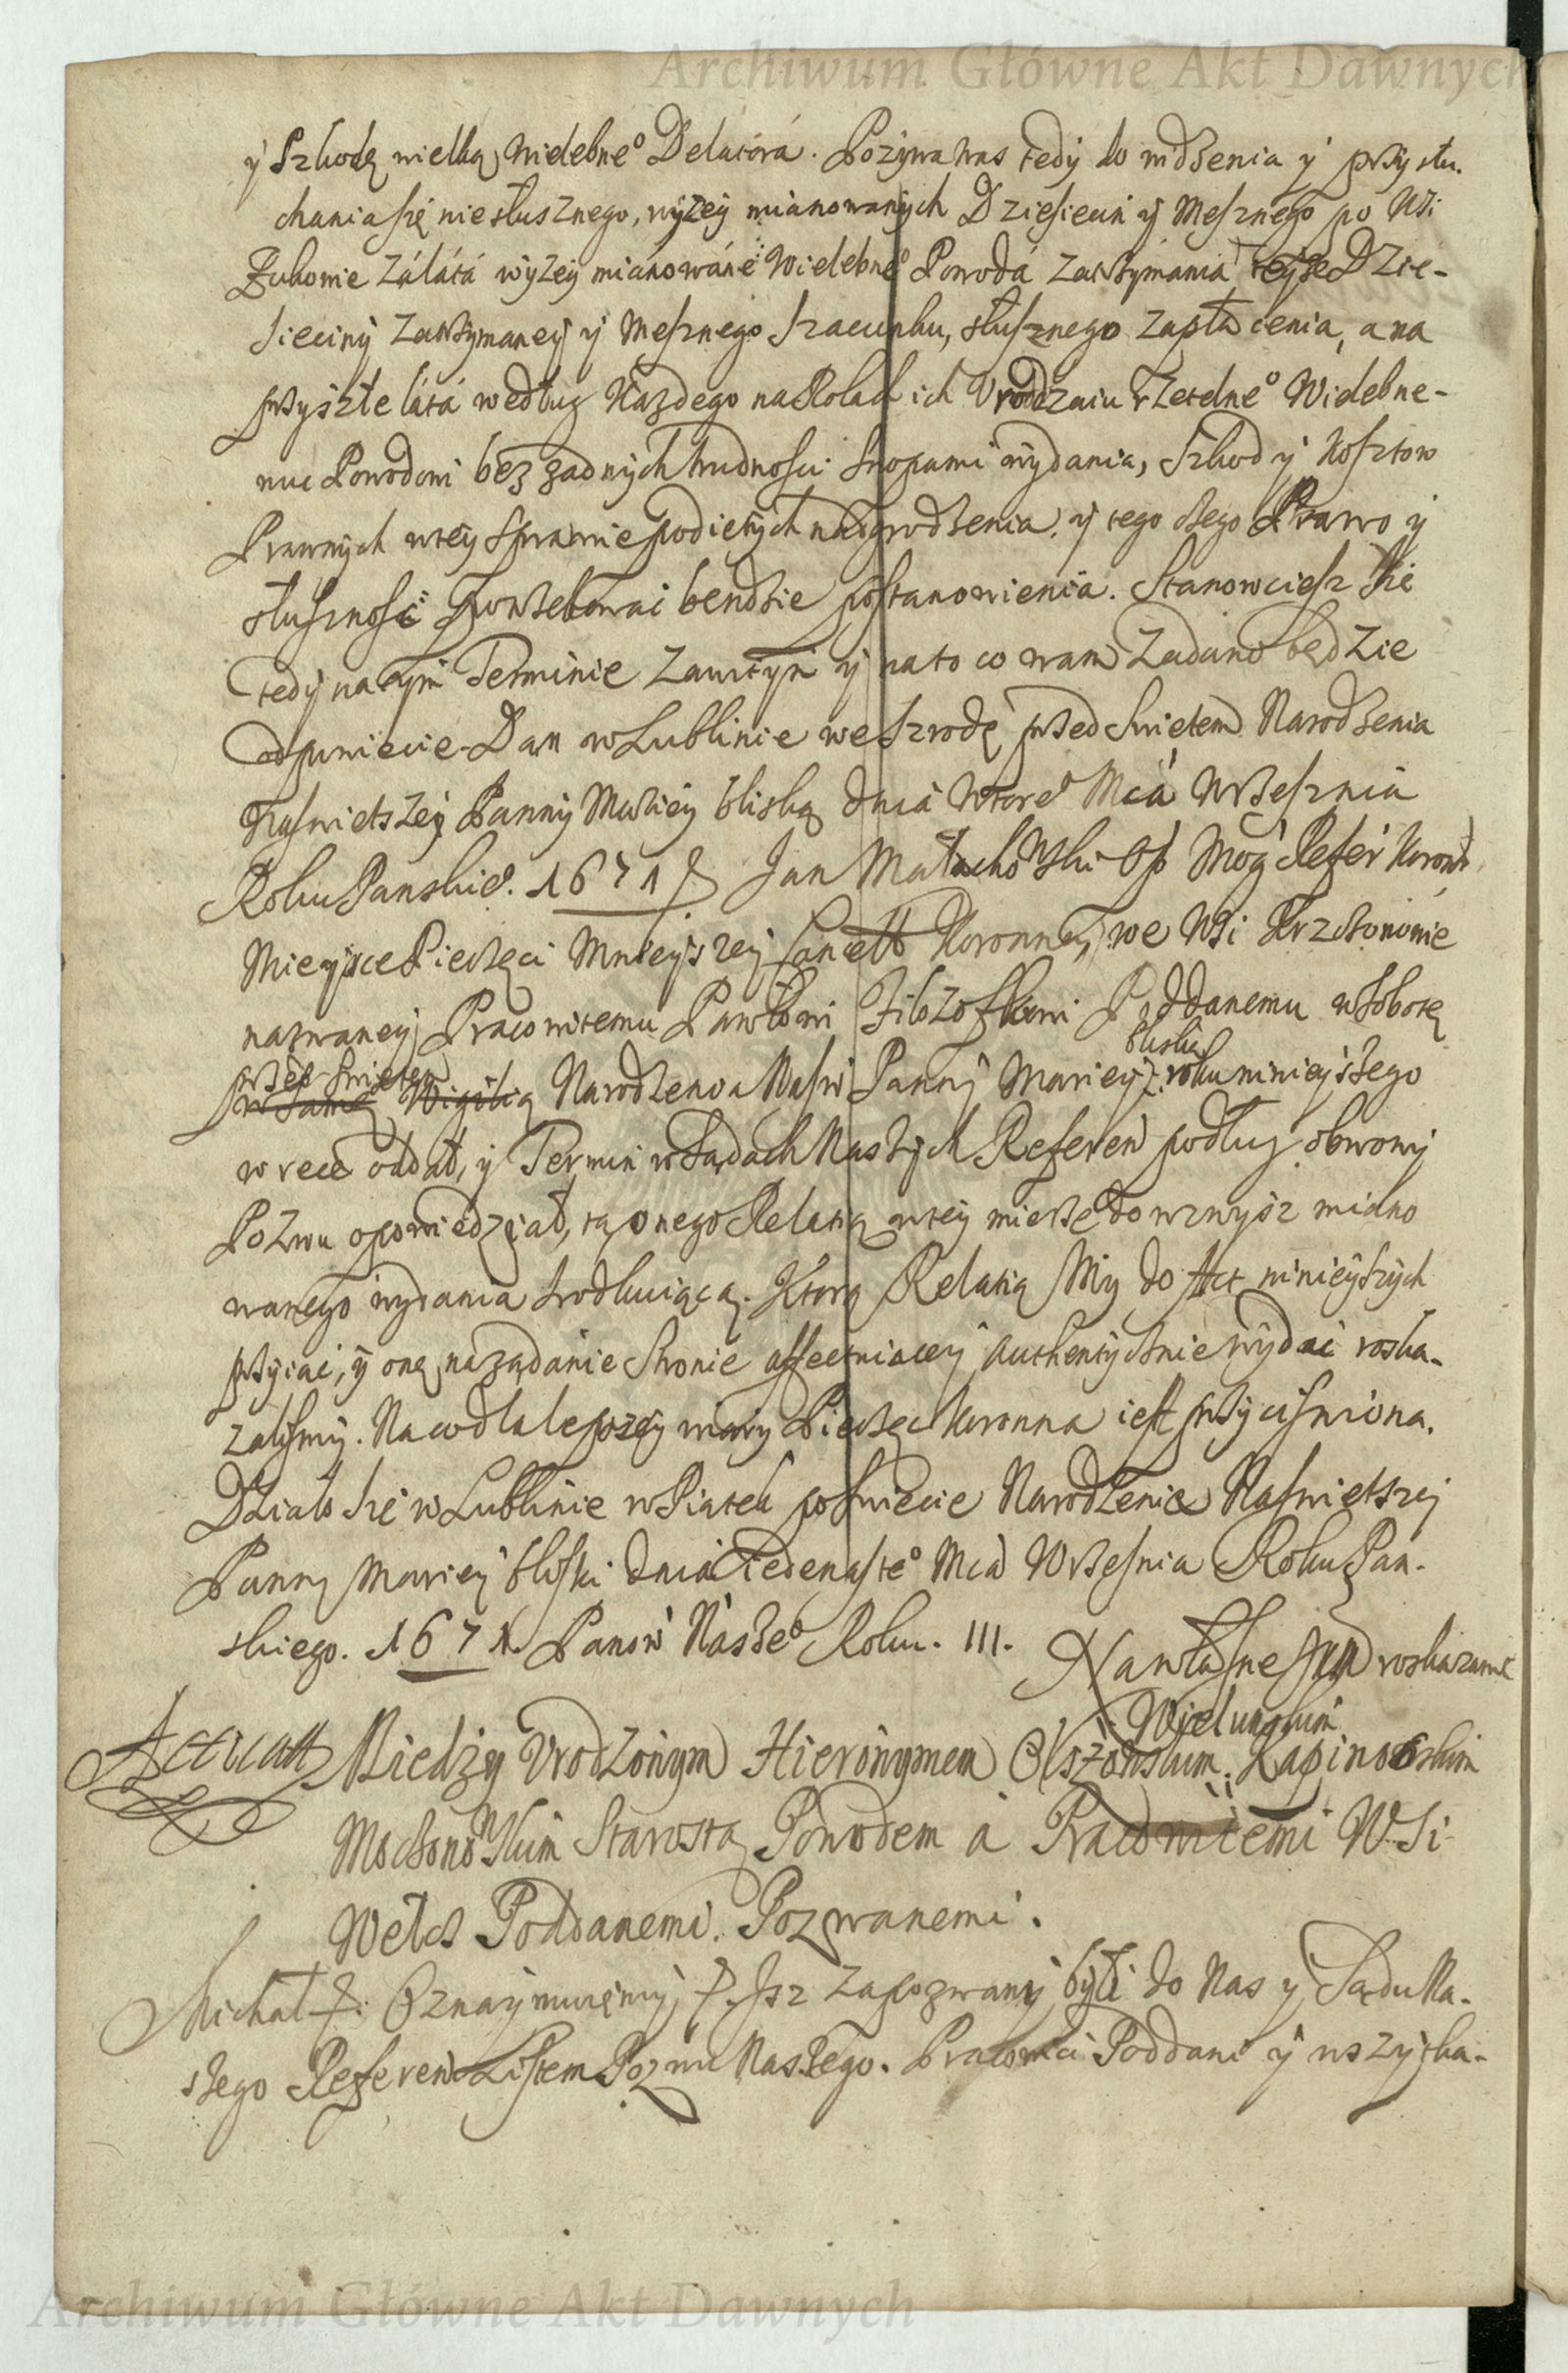 Archiwum Główne Akt Dawnych
y Szkodę wielką Wielebneo Delatorá. Pozywa was tedy do widzenia y przysłu-
chania się niesłusznego, wyzey mianowanych Dziesieciń y Mesznego po Wsi
Zukowie zá látá wyzey miánowáne Wielebneo Powodá zatrzymániá teyze Dzie-
sieciny zatrzymaney y Mesznego szacunku, słusznego zapłacenia, a na
przyszłe látá według Kazdego na Rolach ich Vrodzaiu rzetelneo Wielebne-
mu Powodowi bez zadnych trudnosci snopami wydania, Szkod y Kosztow
Prawnych wtey sprawie podietych nadgrodzenia, y tego czego Prawo y
słusznosć potrzebowai bendzie postanowienia. Stanowciesz sie
tedy na tym Terminie zawitym y na to co wam zadano będzie
odpowiecie. Dan w Lublinie we Szrodę przed Swietem Narodzenia
Naswietszey Panny Mariey bliską dniá wtoreo Mcá Wrzesznia
Roku Panskieo. 1671 Jan Małachowski Op Mog Refer Koron
Mieysce Pieczęci Mnieyszey Cancell Koronney, we Wsi Krzczonowie
nazwaney Pracowitemu Pawłowi Filozofkowi Poddanemu w Sobotę
przed swietem bliską
w Samą Wigilią Narodzenia Nasw Panny Mariey roku ninieyszego
w rece oddał, y Termin w Sądach Naszych Referen podług obrony
Pozwu opowiedział, tą onego Relatią wtey mierze do wzwysz miano
wanego wydania srodkuiącą. Ktorą Relatią My do Act ninieyszych
przyiać, y onę na ządanie Stronie affectuiącey authentycznie wydać roska-
zalismy. Na co dla lepszey wiary Pieczęc Koronna iest przycisniona.
Działo się w Lublinie w Piatek po swiecie Narodzenia Naswietszey
Panny Mariey bliski dniá Iedenasteo Mcá Wrzesnia Roku Pan-
skiego. 1671. Panow Nászeo Roku. III. Na własne roskazanie
Actum Miedzy Vrodzonym Hieronymem Olszowskim. Wielunskim Kapinoskim
Mochonowskim Starostą Powodem á Pracowitemi Wsi
Wełcz Poddanemi. Pozwanemi.
Michał &: Oznaymuięmy, &. Isz zapozwany byli do Nas y Sądu Na-
szego Referen Listem Pozwu Naszego. Pracowici Poddani y wszytka-
Archiwum Główne Akt Dawnych